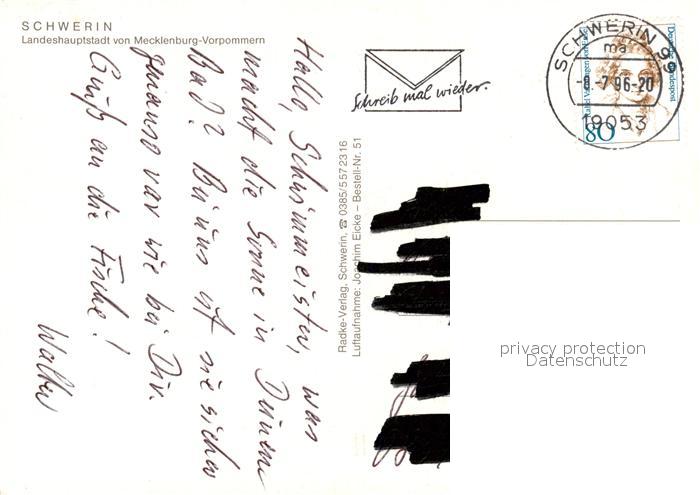 SCHWERIN
Landeshauptstadt von Mecklenburg-Vorpommern
Hallo, Schwimmeister, was
macht die Sonne in Deinem
Bad? Bei uns ist sie sicher
genauso rar wie bei Dir.
Gruß an die Fische!
Walter
Radke-Verlag, Schwerin, ☎ 0385/5572316
Luftaufnahme: Joachim Eicke – Bestell-Nr. 51
Schreib mal wieder.
SCHWERIN 99
ma
-8.-7.96-20
19053
Deutsche Bundespost
80
privacy protection
Datenschutz